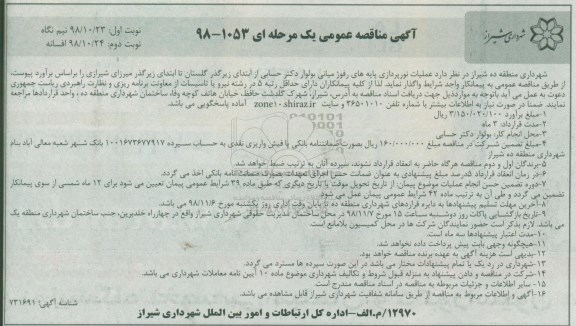 شهرداری شیراز
آگهی مناقصه عمومی یک مرحله ای ۱۰۵۳-۹۸
نوبت اول: ۹۸/۱۰/۲۳ نیم نگاه
نوبت دوم: ۹۸/۱۰/۲۴ افسانه
شهرداری منطقه ده شیراز در نظر دارد عملیات نورپردازی پایه های رفوژ میانی بولوار دکتر حسابی از ابتدای زیرگذر گلستان تا ابتدای زیرگذر میرزای شیرازی را براساس برآورد پیوست،
از طریق مناقصه عمومی به پیمانکار واجد شرایط واگذار نماید. لذا از کلیه پیمانکاران دارای حداقل رتبه ۵ در رشته نیرو یا تاسیسات از معاونت برنامه ریزی و نظارت راهبردی ریاست جمهوری
دعوت به عمل می آید باتوجه به موارد ذیل جهت دریافت اسناد مناقصه به آدرس، شیراز، شهرک گلدشت حافظ، خیابان هاتف کوچه وفا، ساختمان شهرداری منطقه ده، واحد قراردادها مراجعه
نمایند. ضمنا در صورت نیاز به اطلاعات بیشتر با شماره تلفن ۳۶۵۰۱۰۱۰ و سایت zone10.shiraz.ir آماده پاسخگویی می باشد.
۱-مبلغ برآورد: ۳/۱۵۰/۰۲۰/۱۰۰ ریال
۲-مدت قرارداد: ۳ ماه
۳-محل انجام کار: بولوار دکتر حسابی
۴-مبلغ تضمین شرکت در مناقصه مبلغ ۱۶۰/۰۰۰/۰۰۰ ریال بصورت ضمانتنامه بانکی یا فیش واریزی نقدی به حساب سپرده ۱۰۰۱۶۷۳۶۷۷۹۱۷ بانک شهر شعبه معالی آباد بنام
شهرداری منطقه ده شیراز
۵-برندگان اول و دوم مناقصه هرگاه حاضر به انعقاد قرارداد نشوند، سپرده آنان به ترتیب ضبط خواهد شد.
۶-در زمان انعقاد قرارداد ۵درصد مبلغ پیشنهادی به عنوان ضمانت حسن اجرای تعهدات بصورت ضمانت نامه بانکی اخذ می گردد.
۷-دوره تضمین حسن انجام عملیات موضوع پیمان: از تاریخ تحویل موقت یا تاریخ دیگری که طبق ماده ۳۹ شرایط عمومی پیمان تعیین می شود برای ۱۲ ماه شمسی از سوی پیمانکار
تضمین می گردد و طی آن به ترتیب ماده ۴۲ شرایط عمومی پیمان عمل می شود.
۸-آخرین مهلت تسلیم پیشنهادها به دایره قراردادهای شهرداری منطقه ده تا پایان وقت اداری روز یکشنبه مورخ ۹۸/۱۱/۶ می باشد.
۹-تاریخ بازگشایی پاکات روز دوشنبه ساعت ۱۵ مورخ ۹۸/۱۱/۷ در محل ساختمان مدیریت حقوقی شهرداری شیراز واقع در چهارراه خلدبرین، جنب ساختمان شهرداری منطقه یک
می باشد. لازم بذکر است حضور نمایندگان شرکت ها در محل کمیسیون بلامانع است.
۱۰-مدت اعتبار پیشنهادها سه ماه است.
۱۱-هیچگونه وجهی بابت پیش پرداخت داده نخواهد شد.
۱۲-بدیهی است هزینه آگهی به عهده برنده مناقصه خواهد بود.
۱۳-شهرداری در رد یک یا تمام پیشنهادات مختار می باشد در این صورت سپرده ها مسترد می گردد.
۱۴-شرکت در مناقصه و دادن پیشنهاد به منزله قبول شروط و تکالیف شهرداری موضوع ماده ۱۰ آیین نامه معاملات شهرداری می باشد.
۱۵-سایر اطلاعات و جزئیات مربوطه به مناقصه در اسناد مناقصه مندرج است
۱۶-آگهی و اطلاعات مربوط به مناقصه از طریق سامانه شفافیت شهرداری شیراز قابل مشاهده می باشد.
شناسه آگهی: ۷۳۱۶۹۱
۱۲۹۷۰/م.الف-اداره کل ارتباطات و امور بین الملل شهرداری شیراز